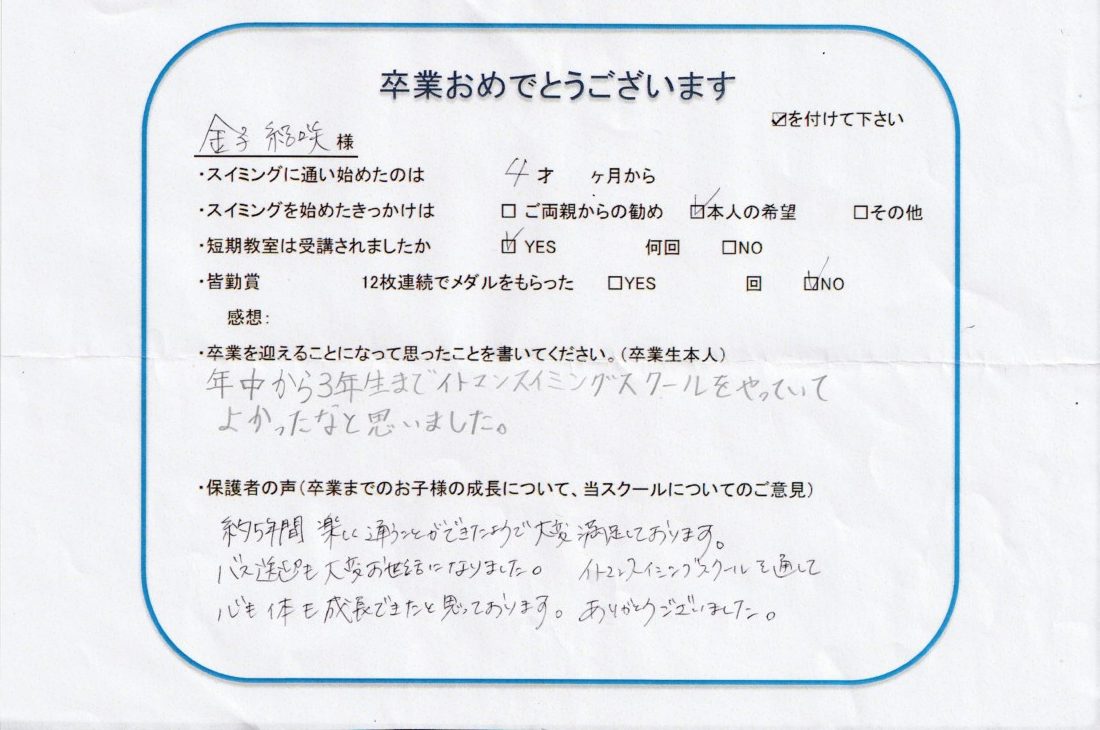 卒業おめでとうございます
☑を付けて下さい
金子 結咲 様
・スイミングに通い始めたのは 4 才 ヶ月から
・スイミングを始めたきっかけは □ ご両親からの勧め ☑本人の希望 □その他
・短期教室は受講されましたか ☑ YES 何回 □NO
・皆勤賞 12枚連続でメダルをもらった □YES 回 ☑NO
感想：
・卒業を迎えることになって思ったことを書いてください。（卒業生本人）
年中から3年生までイトマンスイミングスクールをやっていて
よかったなと思いました。
・保護者の声（卒業までのお子様の成長について、当スクールについてのご意見）
約5年間 楽しく通うことができたようで大変満足しております。
バス送迎も大変お世話になりました。 イトマンスイミングスクールを通して
心も体も成長できたと思っております。ありがとうございました。